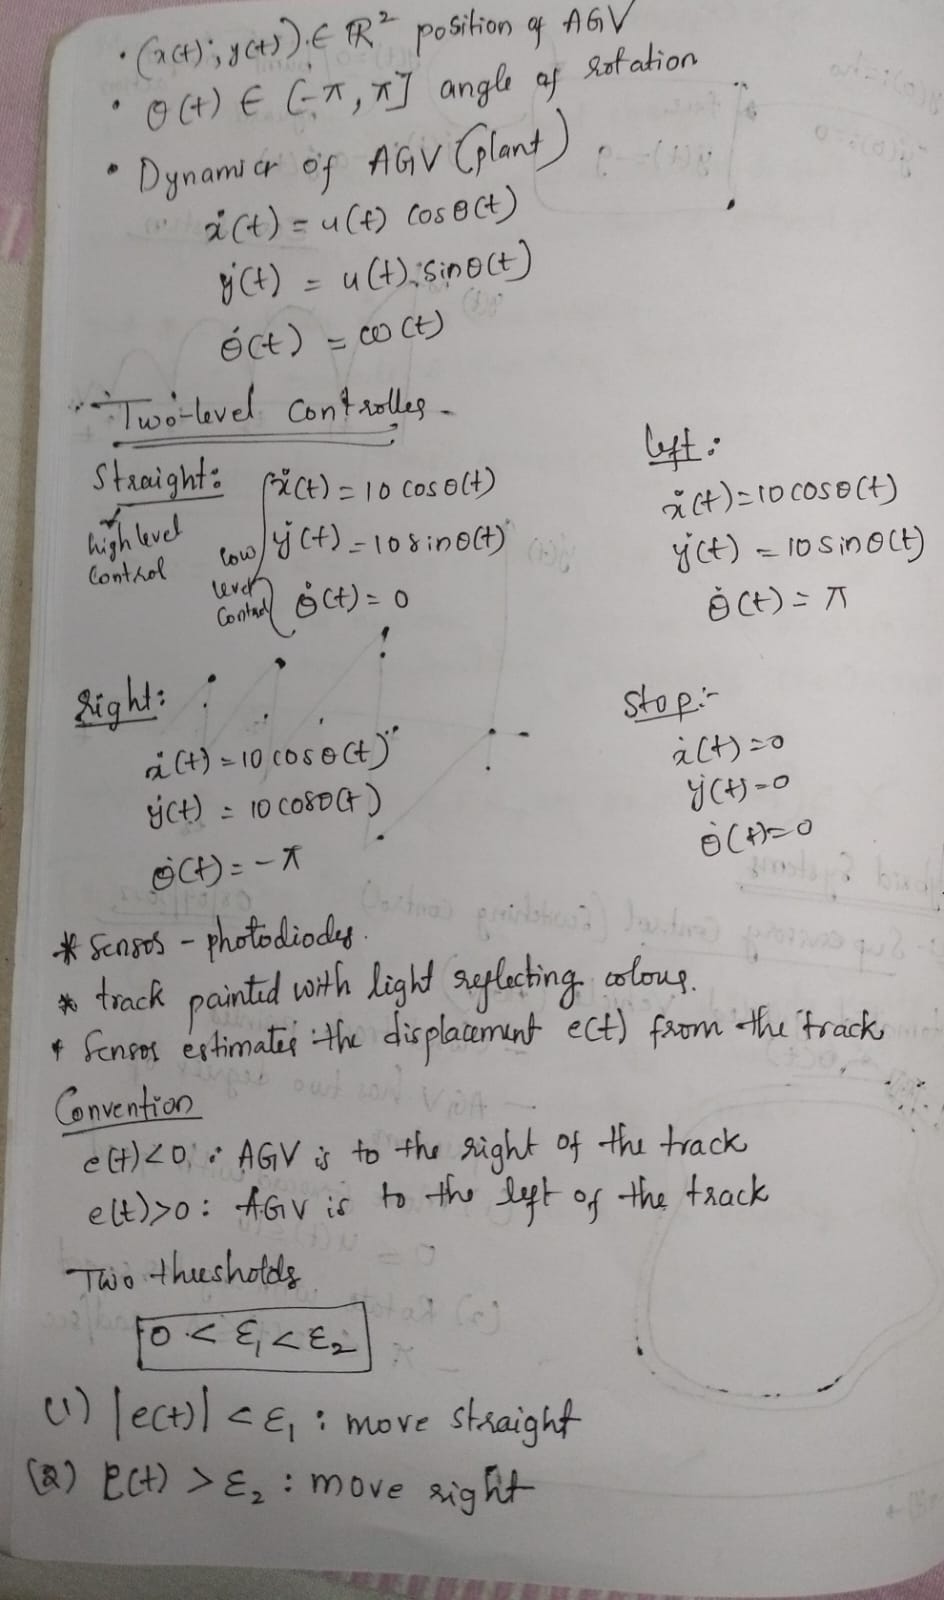 • (x(t); y(t)) ∈ ℝ² position of AGV
• θ(t) ∈ (-π, π] angle of rotation
• Dynamics of AGV (plant)
ẋ(t) = u(t) cosθ(t)
ẏ(t) = u(t) sinθ(t)
θ̇(t) = ω(t)
Two-level controller
Straight:
high level
Control
low
level
Control
ẋ(t) = 10 cosθ(t)
ẏ(t) = 10 sinθ(t)
θ̇(t) = 0
left:
ẋ(t) = 10 cosθ(t)
ẏ(t) = 10 sinθ(t)
θ̇(t) = π
Right:
ẋ(t) = 10 cosθ(t)
ẏ(t) = 10 cosθ(t)
θ̇(t) = -π
Stop:-
ẋ(t) = 0
ẏ(t) = 0
θ̇(t) = 0
* Sensor - photodiodes.
* track painted with light reflecting colour.
* Sensor estimates the displacement e(t) from the track
Convention
e(t) < 0 : AGV is to the right of the track
e(t) > 0 : AGV is to the left of the track
Two thresholds
0 < ε₁ < ε₂
(1) |e(t)| < ε₁ : move straight
(2) e(t) > ε₂ : move right